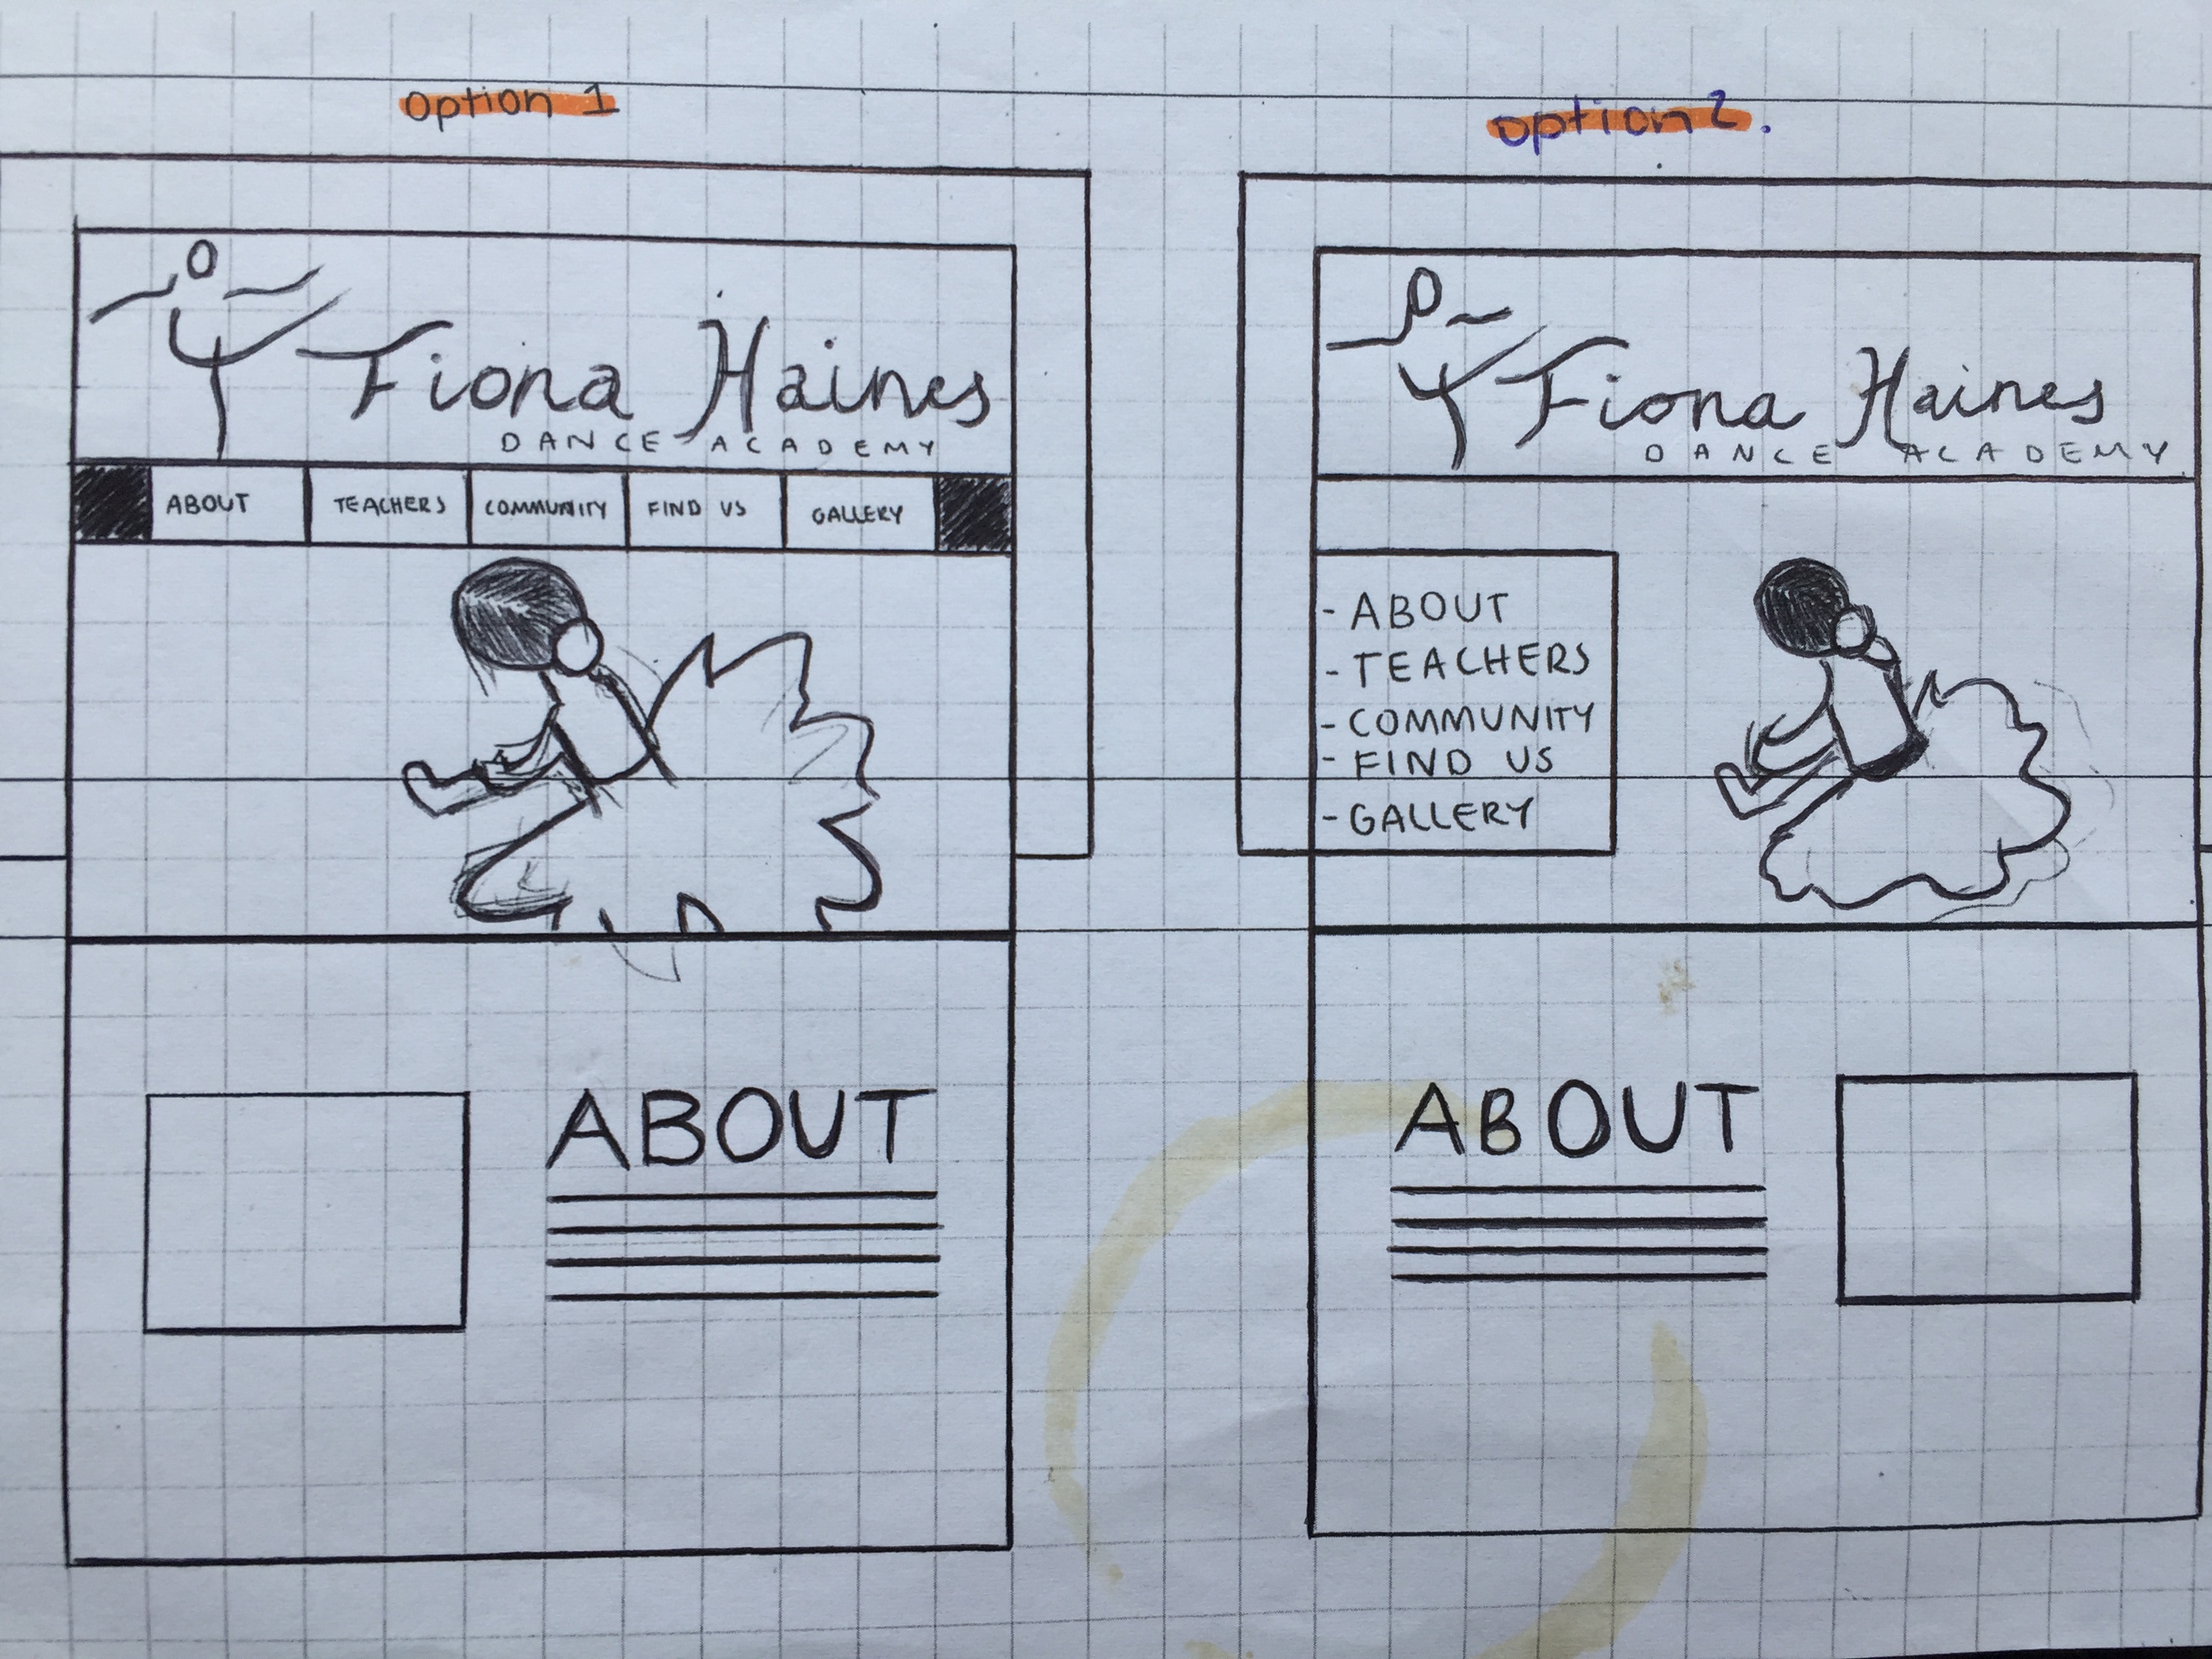 option 1
Fiona Haines
DANCE ACADEMY
ABOUT TEACHERS COMMUNITY FIND US GALLERY
ABOUT
option 2.
Fiona Haines
DANCE ACADEMY
- ABOUT
- TEACHERS
- COMMUNITY
- FIND US
- GALLERY
ABOUT